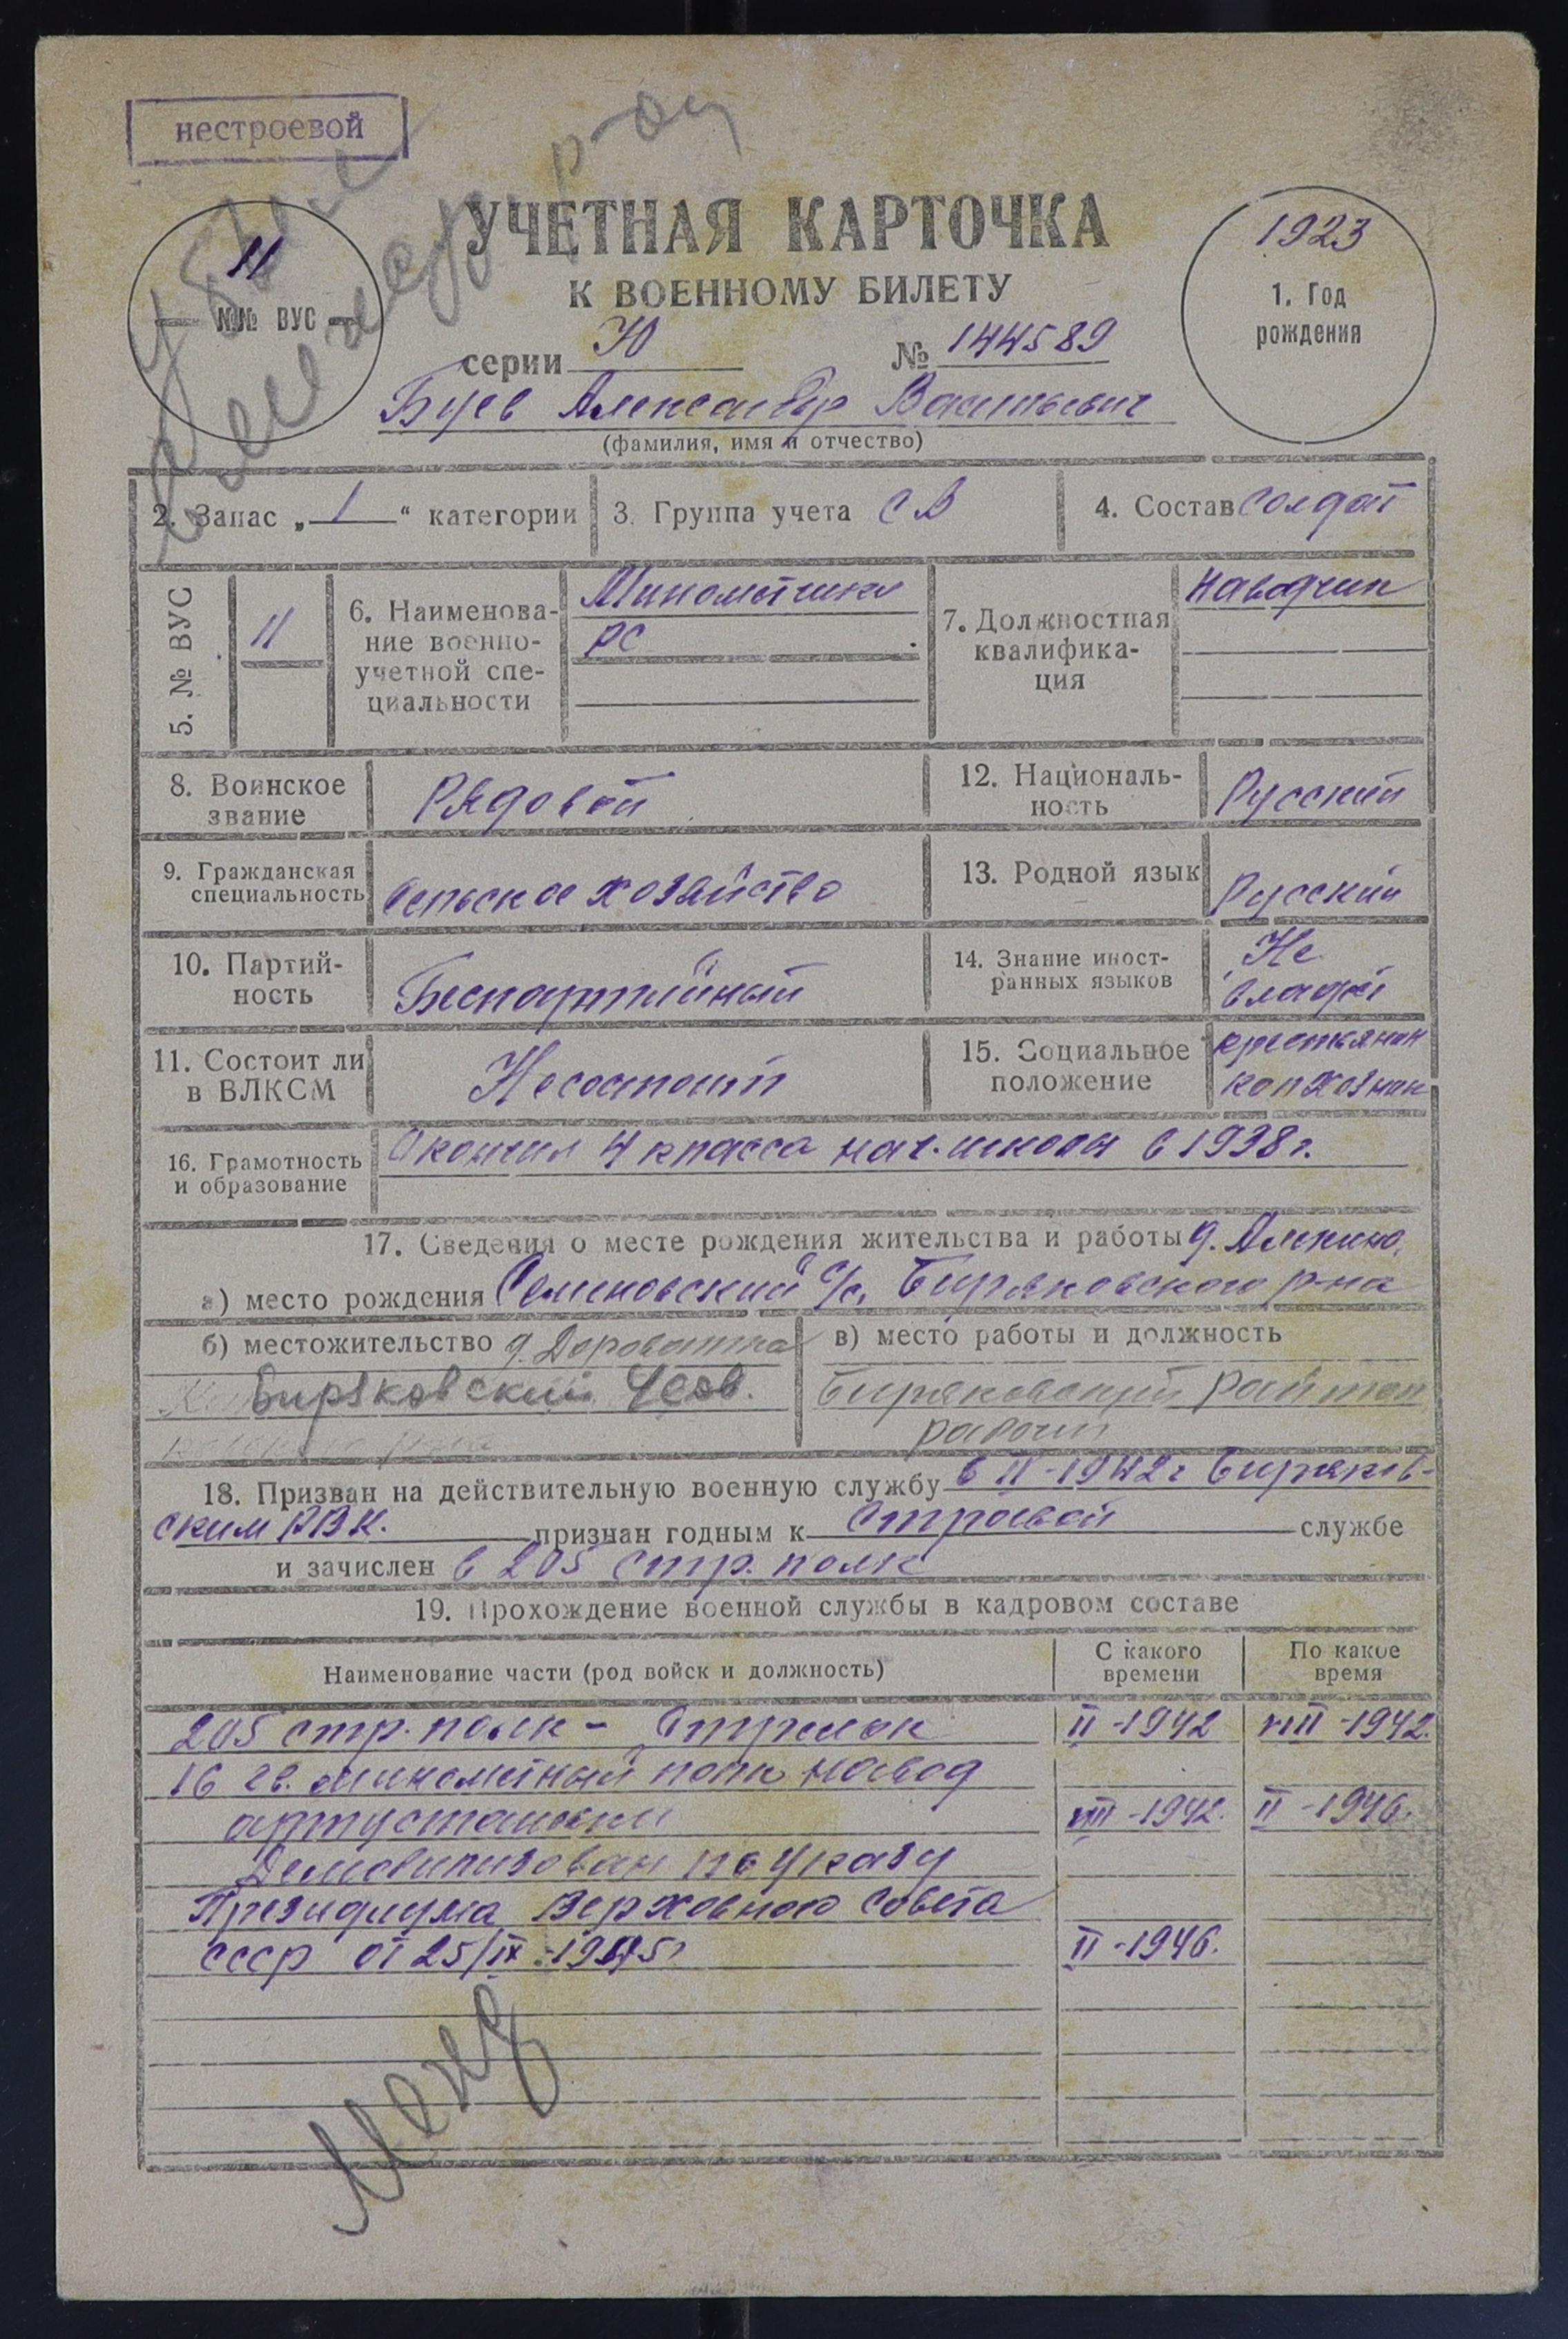 нестроевой
УЧЕТНАЯ КАРТОЧКА
К ВОЕННОМУ БИЛЕТУ
11
№№ ВУС
1923
1. Год
рождения
серии Ю № 144589
Буев Александр Васильевич
(фамилия, имя и отчество)
2. Запас „ 1 “ категории
3. Группа учета СВ
4. Состав солдат
5. № ВУС
11
6. Наименова-
ние военно-
учетной спе-
циальности
Минометчики
РС
7. Должностная
квалифика-
ция
Наводчик
8. Воинское
звание
Рядовой
12. Националь-
ность
Русский
9. Гражданская
специальность
Сельское хозяйство
13. Родной язык
Русский
10. Партий-
ность
Беспартийный
14. Знание иност-
ранных языков
Не
владеет
11. Состоит ли
в ВЛКСМ
Несостоит
15. Социальное
положение
крестьянин
колхозник
16. Грамотность
и образование
Окончил 4 класса нач. школы в 1938 г.
17. Сведения о месте рождения жительства и работы д. Алекино,
а) место рождения Семеновский с/с, Биряковского р-на
б) местожительство д. Дороватка
Биряковский
в) место работы и должность
Биряковский райтоп
рабочий
18. Призван на действительную военную службу в II-1942 г Биряков-
ским РВК. признан годным к строевой службе
и зачислен в 205 стр. полк
19. Прохождение военной службы в кадровом составе
Наименование части (род войск и должность)
С какого
времени
По какое
время
205 стр. полк - Стрелок II-1942 VIII-1942.
16 гв. минометный полк навод
артустановки VIII-1942. II-1946.
Демобилизован по указу
Президиума Верховного Совета
СССР от 25/IX-1945г II-1946.